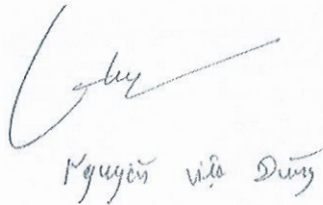 Nguyễn Việt Dũng